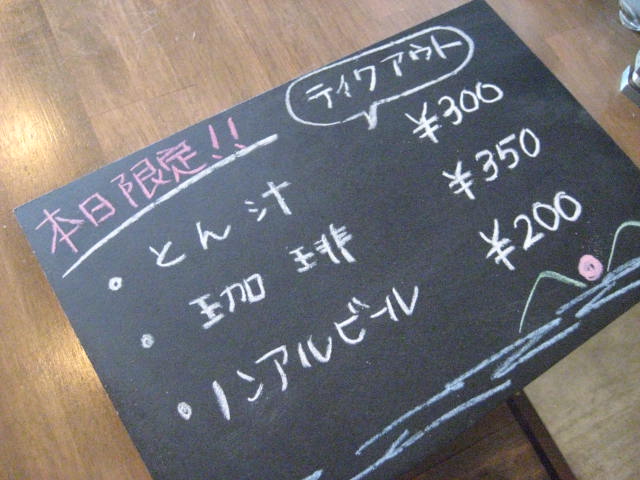 本日限定!!
ティクアウト
・とん汁 ¥300
・珈琲 ¥350
・ノンアルビール ¥200